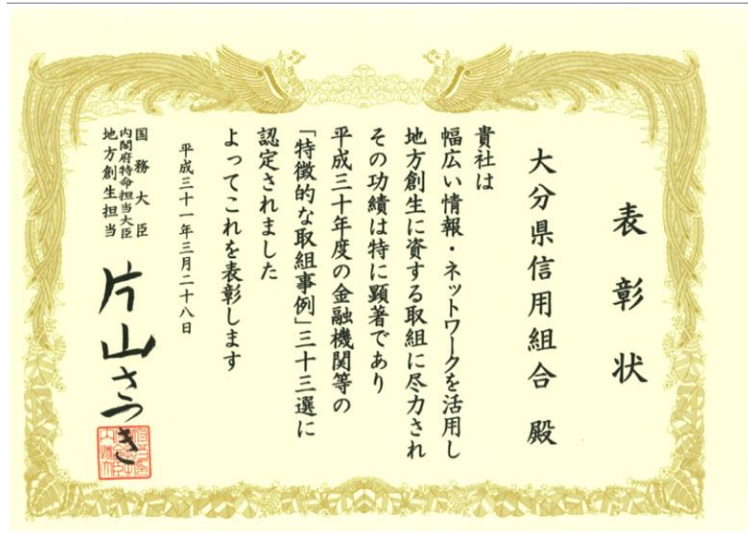 表彰状
大分県信用組合 殿
貴社は
幅広い情報・ネットワークを活用し
地方創生に資する取組に尽力され
その功績は特に顕著であり
平成三十年度の金融機関等の
「特徴的な取組事例」三十三選に
認定されました
よってこれを表彰します
平成三十一年三月二十八日
国務大臣
内閣府特命担当大臣
地方創生担当
片山さつき